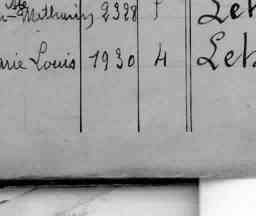 n-Mathurin 2328 f Let
arie Louis 1930 4 Let